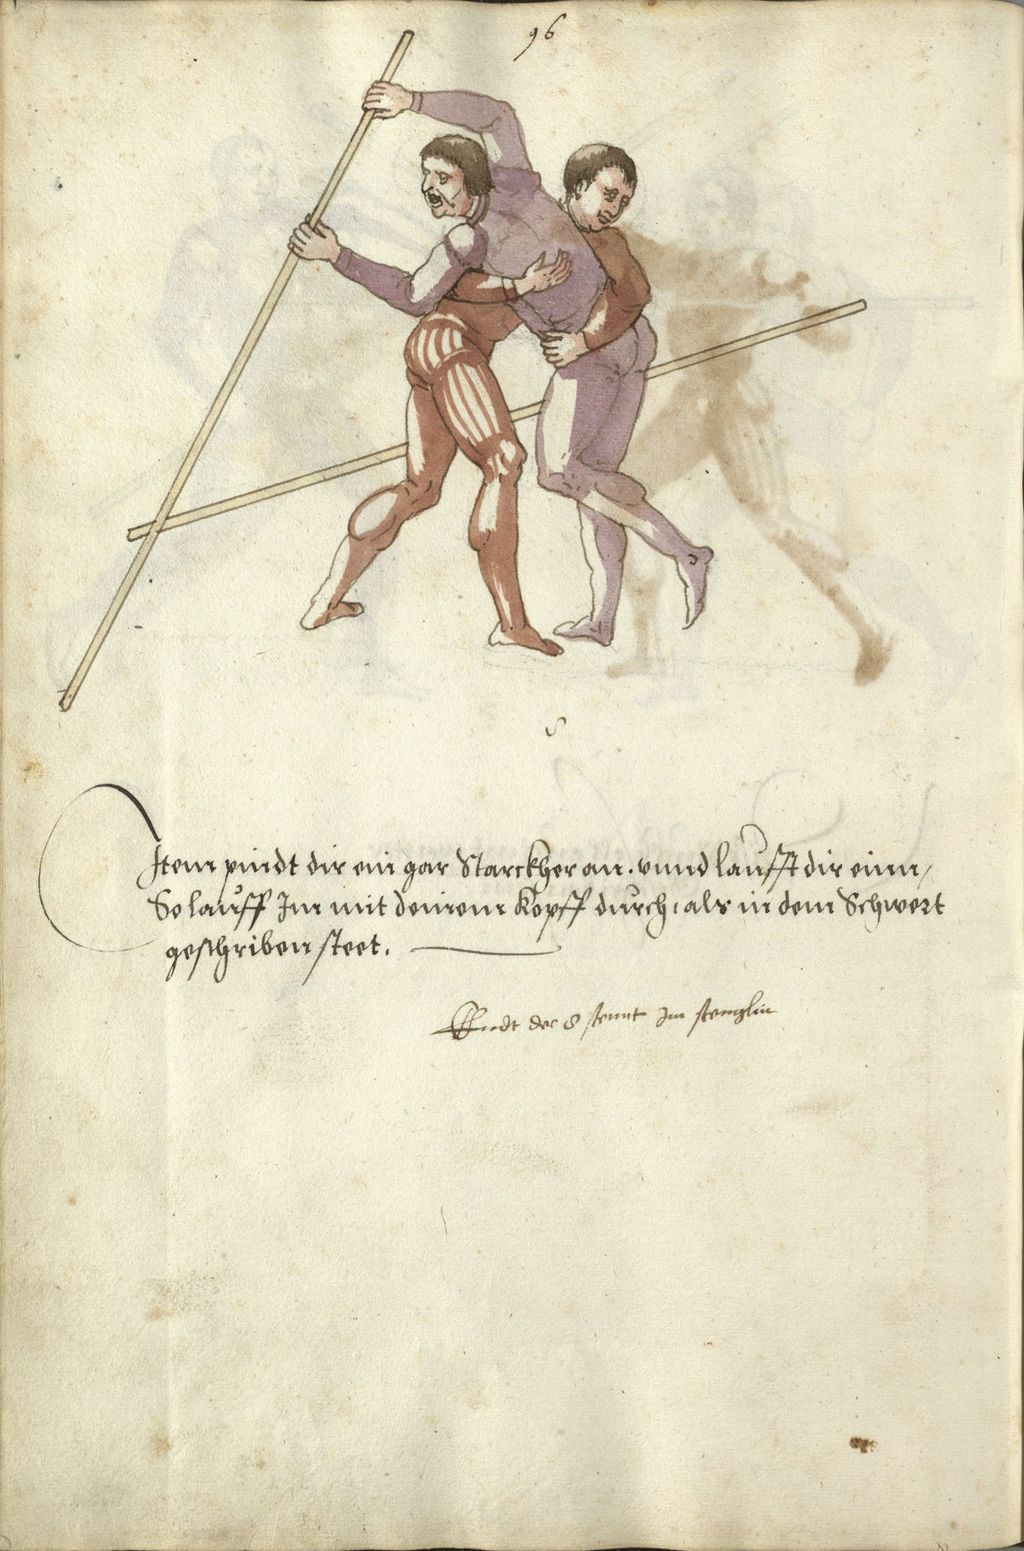 96
8
Item pindt dir ein gar Starckher an. vnnd laufft dir einn,
So lauff Im mit deinem Kopff durch, als in dem Schwert
geschriben steet.
Endt der 8 stennt Im stenglin